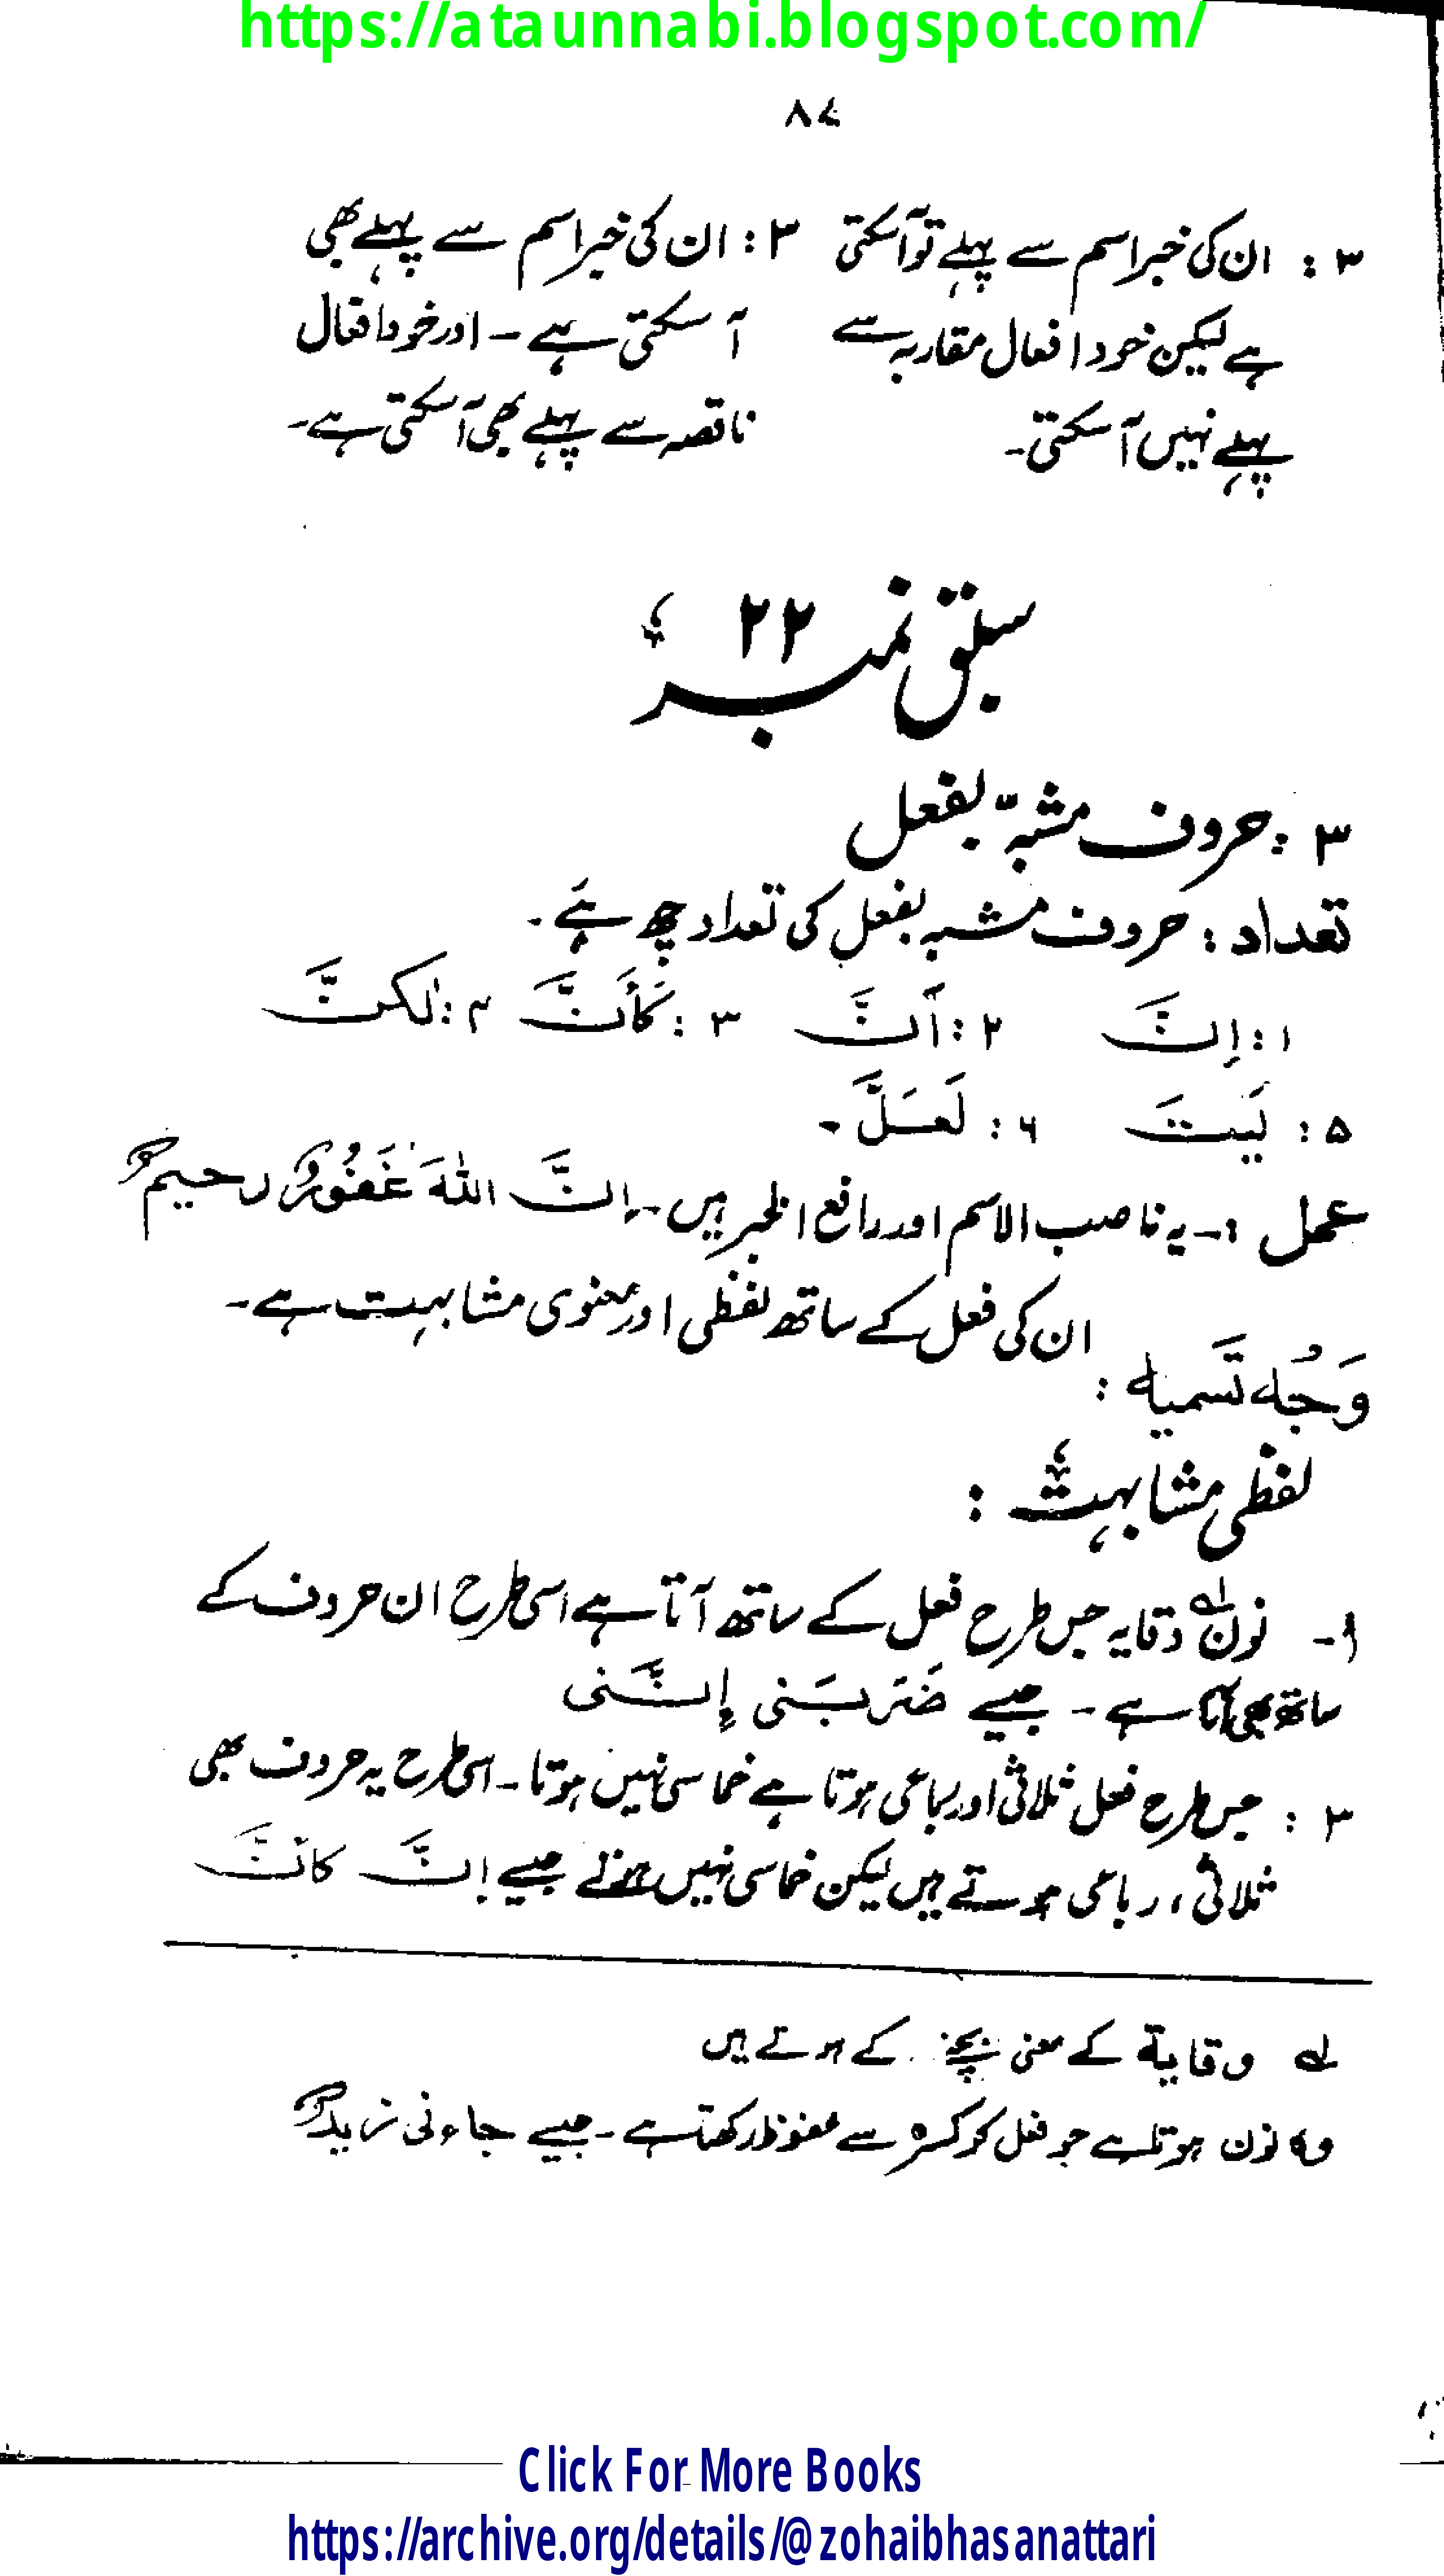 https://ataunnabi.blogspot.com/
۸۷
۳: ان کی خبر اسم سے پہلے تو آسکتی
ہے لیکن خود افعال مقاربہ سے
پہلے نہیں آسکتی۔
۳: ان کی خبر اسم سے پہلے بھی
آ سکتی ہے۔ اور خود افعال
ناقصہ سے پہلے بھی آسکتی ہے۔
سبق نمبر ۲۲
۳: حروف مشبہّ بفعل
تعداد: حروف مشبہ بفعل کی تعداد چھ ہے۔
۱: اِنَّ ۲: اَنَّ ۳: کَأَنَّ ۴: لٰکِنَّ
۵: لَیتَ ۶: لَعَلَّ۔
عمل :۔ یہ ناصب الاسم اور رافع الخبر ہیں۔ اِنَّ اللّٰهَ غَفُورٌ رحیمٌ
وَجُه تَسمیه: ان کی فعل کے ساتھ لفظی اور معنوی مشابہت ہے۔
لفظی مشابہت:
۱۔ نون لہ وقایہ جس طرح فعل کے ساتھ آتا ہے اسی طرح ان حروف کے
ساتھ بھی آتا ہے۔ جیسے ضَرَبَنی اِنَّنی
۲: جس طرح فعل ثلاثی اور رباعی ہوتا ہے خماسی نہیں ہوتا۔ اسی طرح یہ حروف بھی
ثلاثی، رباعی ہوتے ہیں لیکن خماسی نہیں ہوتے جیسے اِنَّ کانَّ
لہ وقایة کے معنی بچنے کے ہوتے ہیں
وہ نون ہوتا ہے جو فعل کو کسرہ سے محفوظ رکھتا ہے۔ جیسے جاءنی زیدٌ
Click For More Books
https://archive.org/details/@zohaibhasanattari